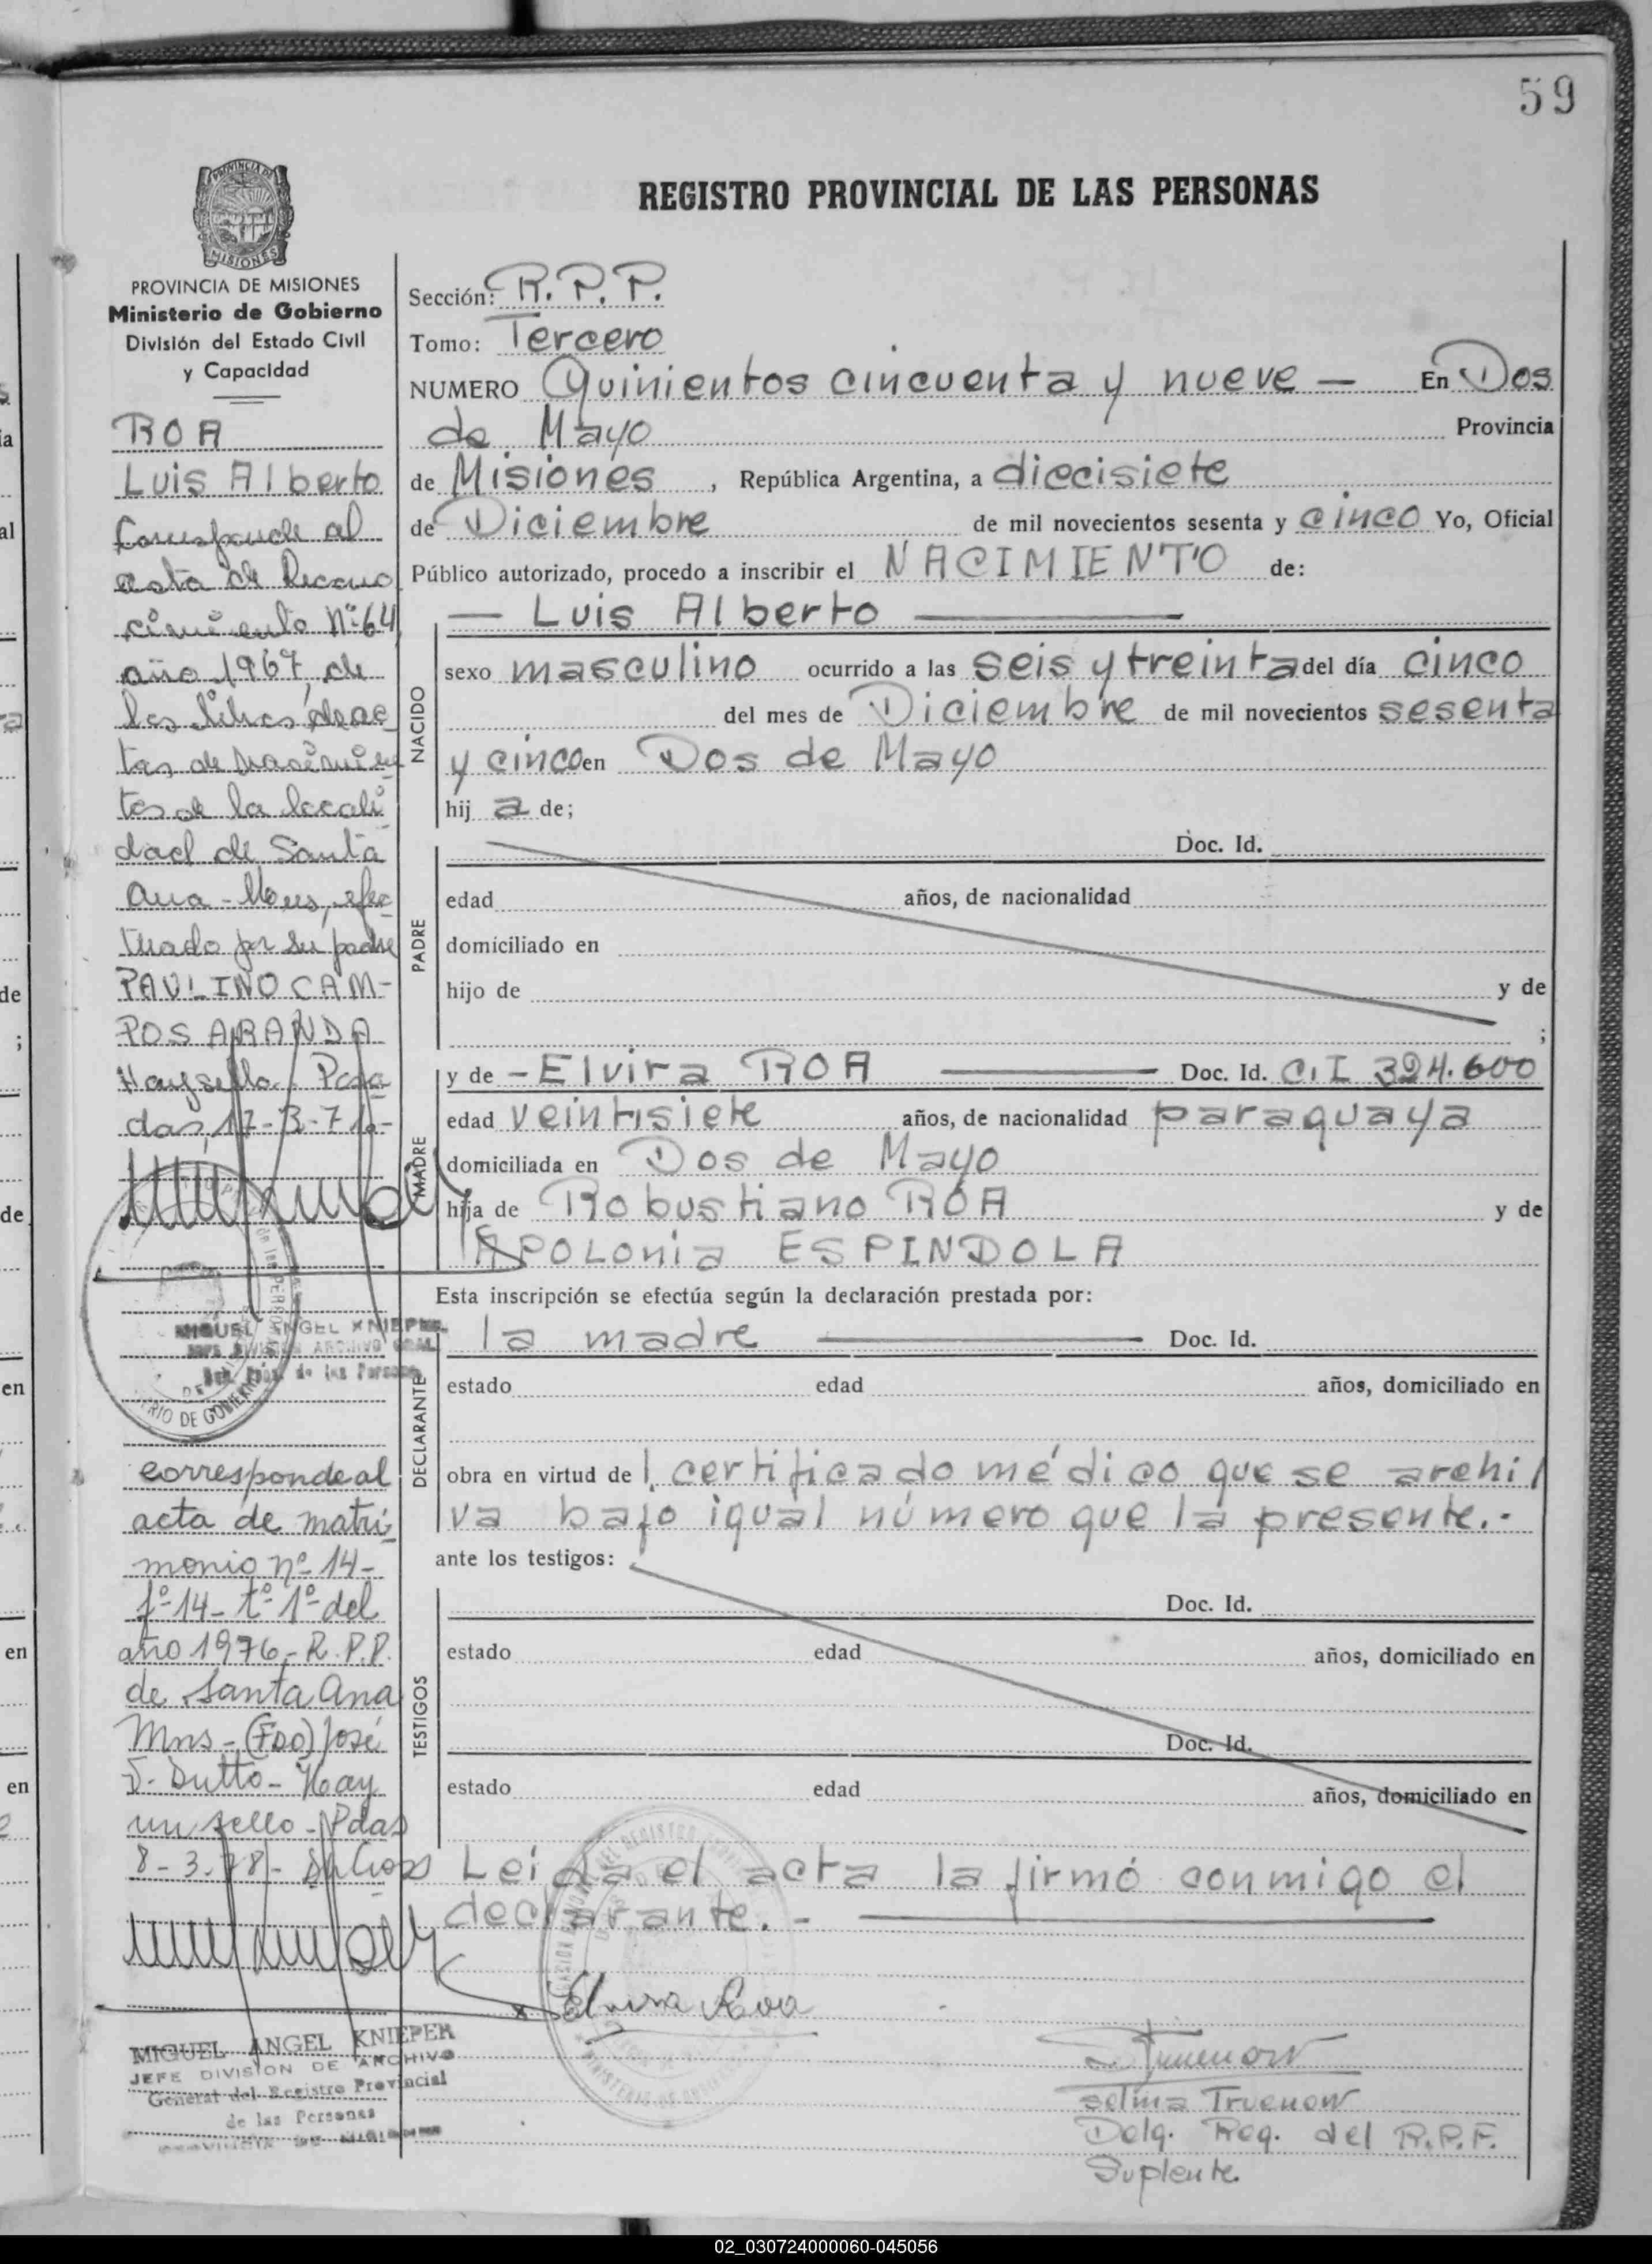 59
PROVINCIA DE
MISIONES
REGISTRO PROVINCIAL DE LAS PERSONAS
PROVINCIA DE MISIONES
Ministerio de Gobierno
División del Estado Civil
y Capacidad
ROA
Luis Alberto
Corresponde al
acta de Recono
cimiento Nº 64
año 1967, de
los libros de ac
tas de nacimien
tos de la locali
dad de Santa
Ana - Mnes, efec
tuado por su padre
PAULINO CAM-
POS ARANDA
Hay sello. Posa
das, 17-3-71.-
MIGUEL ANGEL KNIEPER
JEFE DIVISION ARCHIVO GRAL
de las Personas
RIO DE GOBIERNO
corresponde al
acta de matri
monio nº 14-
fº 14- tº 1º del
año 1976.- R.P.P.
de Santa Ana
Mns - (FDO) José
Dutto - Hay
un sello - Pdas
8-3-78-
MIGUEL ANGEL KNIEPER
JEFE DIVISION DE ARCHIVO
General del Registro Provincial
de las Personas
Sección: R.P.P.
Tomo: Tercero
NUMERO Quinientos cincuenta y nueve — En Dos
de Mayo Provincia
de Misiones, República Argentina, a diecisiete
de Diciembre de mil novecientos sesenta y cinco Yo, Oficial
Público autorizado, procedo a inscribir el NACIMIENTO de:
— Luis Alberto —
NACIDO
sexo masculino ocurrido a las seis y treinta del día cinco
del mes de Diciembre de mil novecientos sesenta
y cinco en Dos de Mayo
hij a de;
PADRE
Doc. Id.
edad años, de nacionalidad
domiciliado en
hijo de y de
;
MADRE
y de - Elvira ROA — Doc. Id. C.I 394.600
edad veintisiete años, de nacionalidad paraguaya
domiciliada en Dos de Mayo
hija de Robustiano ROA y de
APOLONIA ESPINDOLA
Esta inscripción se efectúa según la declaración prestada por:
DECLARANTE
la madre — Doc. Id.
estado edad años, domiciliado en
obra en virtud de l certificado médico que se archi
va bajo igual número que la presente.-
ante los testigos:
TESTIGOS
Doc. Id.
estado edad años, domiciliado en
Doc. Id.
estado edad años, domiciliado en
Leida el acta la firmó conmigo el
declarante. - —
x Elvira Roa
Selma Truenow
Delg. Reg. del R.P.P.
Suplente.
02_030724000060-045056